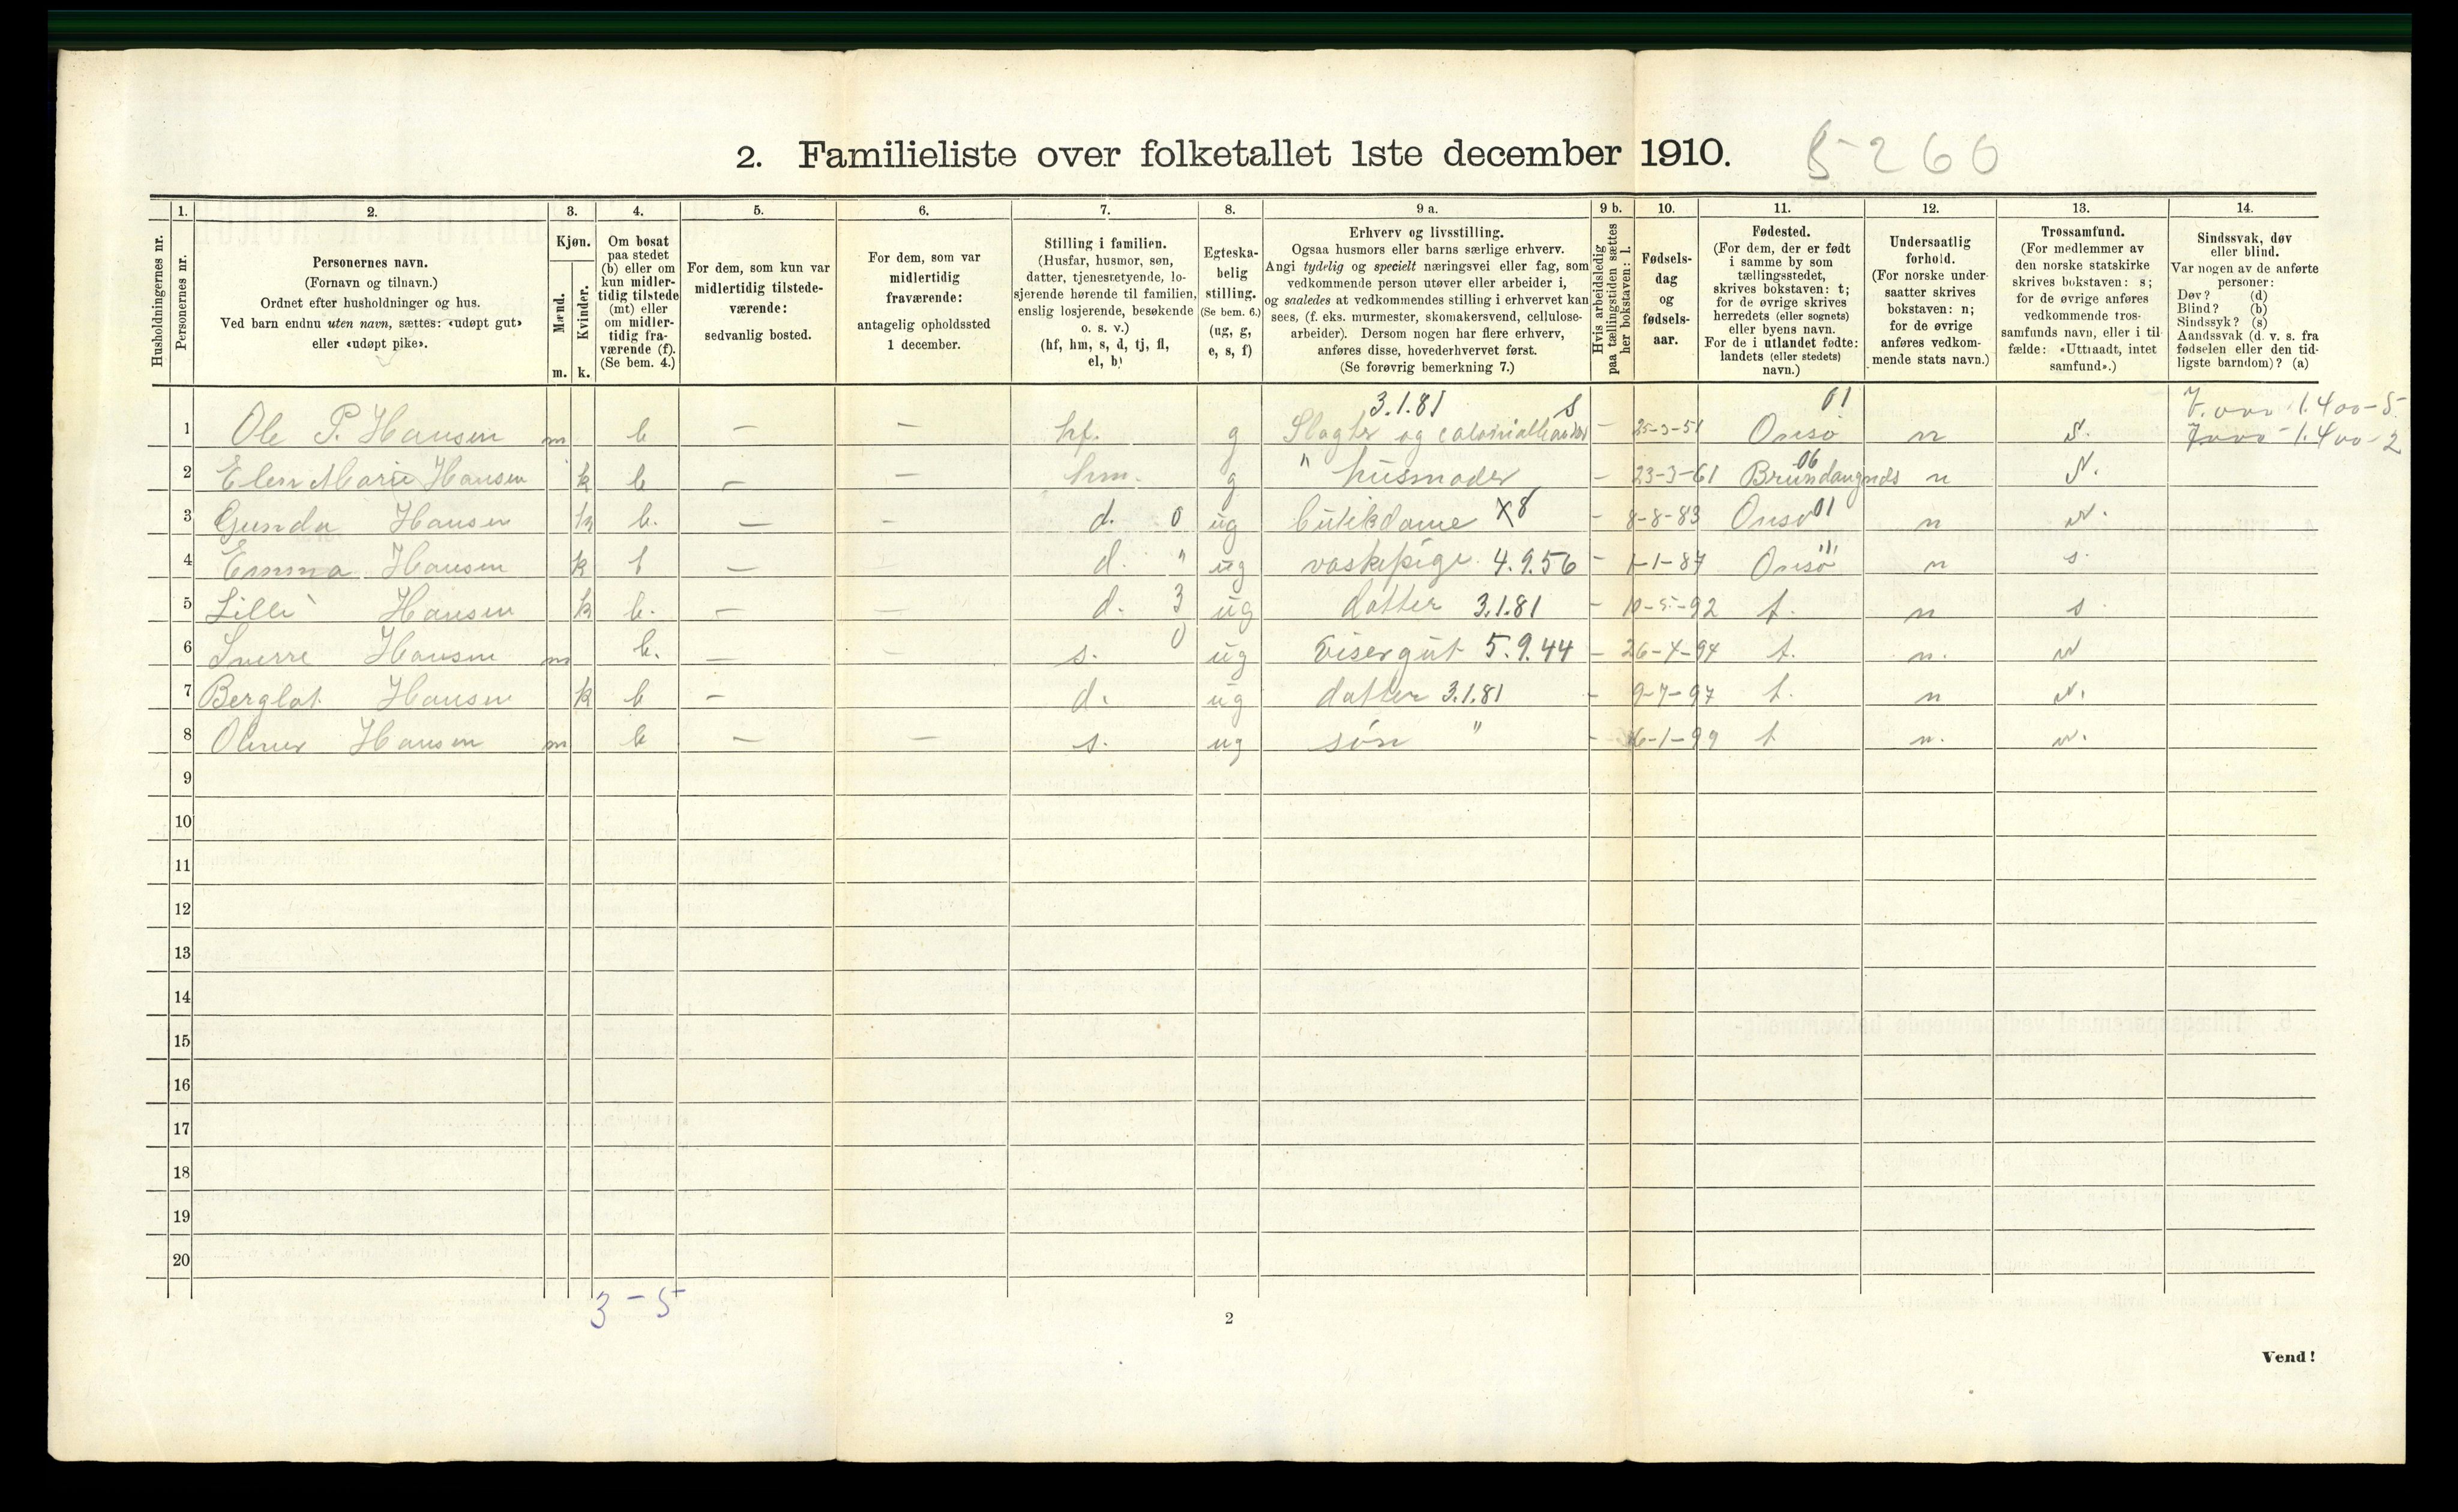 2. Familieliste over folketallet 1ste december 1910. 5-260
1. 2. 3. 4. 5. 6. 7. 8. 9 a. 9 b. 10. 11. 12. 13. 14.
Husholdningernes nr.
Personernes nr.
Personernes navn.
(Fornavn og tilnavn.)
Ordnet efter husholdninger og hus.
Ved barn endnu uten navn, sættes: «udøpt gut»
eller «udøpt pike».
Kjøn.
Mænd.
Kvinder.
m. k.
Om bosat
paa stedet
(b) eller om
kun midler-
tidig tilstede
(mt) eller
om midler-
tidig fra-
værende (f).
(Se bem. 4.)
For dem, som kun var
midlertidig tilstede-
værende:
sedvanlig bosted.
For dem, som var
midlertidig
fraværende:
antagelig opholdssted
1 december.
Stilling i familien.
(Husfar, husmor, søn,
datter, tjenestetyende, lo-
sjerende hørende til familien,
enslig losjerende, besøkende
o. s. v.)
(hf, hm, s, d, tj, fl,
el, b)
Egteska-
belig
stilling.
(Se bem. 6.)
(ug, g,
e, s, f)
Erhverv og livsstilling.
Ogsaa husmors eller barns særlige erhverv.
Angi tydelig og specielt næringsvei eller fag, som
vedkommende person utøver eller arbeider i,
og saaledes at vedkommendes stilling i erhvervet kan
sees, (f. eks. murmester, skomakersvend, cellulose-
arbeider). Dersom nogen har flere erhverv,
anføres disse, hovederhvervet først.
(Se forøvrig bemerkning 7.)
Hvis arbeidsledig
paa tællingstiden sættes
her bokstaven: l.
Fødsels-
dag
og
fødsels-
aar.
Fødested.
(For dem, der er født
i samme by som
tællingsstedet,
skrives bokstaven: t;
for de øvrige skrives
herredets (eller sognets)
eller byens navn.
For de i utlandet fødte:
landets (eller stedets)
navn.)
Undersaatlig
forhold.
(For norske under-
saatter skrives
bokstaven: n;
for de øvrige
anføres vedkom-
mende stats navn.)
Trossamfund.
(For medlemmer av
den norske statskirke
skrives bokstaven: s;
for de øvrige anføres
vedkommende tros-
samfunds navn, eller i til-
fælde: «Uttraadt, intet
samfund».)
Sindssvak, døv
eller blind.
Var nogen av de anførte
personer:
Døv? (d)
Blind? (b)
Sindssyk? (s)
Aandssvak (d. v. s. fra
fødselen eller den tid-
ligste barndom)? (a)
3.1.81 s 01
1 Ole P. Hansen m b — — hf. g Slagter og colonialhandler – 25-3-51 Onsø n s. 1.400-5
1.400-2
06
2 Elen Marie Hansen k b — — hm. g " husmoder – 23-3-61 n s.
3 Gunda Hansen k b. — - d. 0 ug butikdame X8 – 8-8-83 Onsø 01 n s.
4 Emma Hansen k b — — d. " ug vaskepige 4.9.56 – 1-1-87 Onsø " n s
5 Lilli Hansen k b. — — d. 3 ug datter 3.1.81 – 10-5-92 t. n s
6 Sverre Hansen m b. — — s. 0 ug visergut 5.9.44 – 26-4-94 t. n. s
7 Berglot Hansen k b — d. ug datter 3.1.81 - 9-7-97 t. n s.
8 Hansen m b — — s. ug søn " - 6-1-99 t n. s.
9
10
11
12
13
14
15
16
17
18
19
20
3-5
2
Vend!